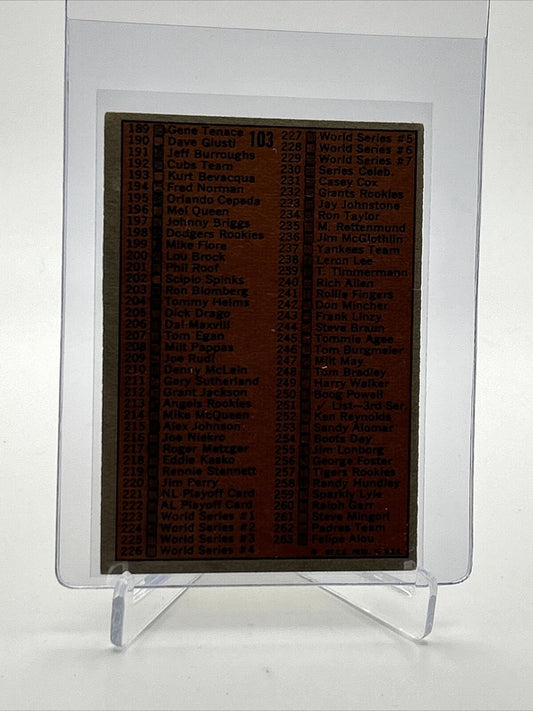 103
189 Gene Tenace
190 Dave Giusti
191 Jeff Burroughs
192 Cubs Team
193 Kurt Bevacqua
194 Fred Norman
195 Orlando Cepeda
196 Mel Queen
197 Johnny Briggs
198 Dodgers Rookies
199 Mike Fiore
200 Lou Brock
201 Phil Roof
202 Scipio Spinks
203 Ron Blomberg
204 Tommy Helms
205 Dick Drago
206 Dal Maxvill
207 Tom Egan
208 Milt Pappas
209 Joe Rudi
210 Denny McLain
211 Gary Sutherland
212 Grant Jackson
213 Angels Rookies
214 Mike McQueen
215 Alex Johnson
216 Joe Niekro
217 Roger Metzger
218 Eddie Kasko
219 Rennie Stennett
220 Jim Perry
221 NL Playoff Card
222 AL Playoff Card
223 World Series #1
224 World Series #2
225 World Series #3
226 World Series #4
227 World Series #5
228 World Series #6
229 World Series #7
230 Series Celeb.
231 Casey Cox
232 Giants Rookies
233 Jay Johnstone
234 Ron Taylor
235 M. Rettenmund
236 Jim McGlothlin
237 Yankees Team
238 Leron Lee
239 T. Timmermann
240 Rich Allen
241 Rollie Fingers
242 Don Mincher
243 Frank Linzy
244 Steve Braun
245 Tommie Agee
246 Tom Burgmeier
247 Milt May
248 Tom Bradley
249 Harry Walker
250 Boog Powell
251 ✓ List—3rd Ser.
252 Ken Reynolds
253 Sandy Alomar
254 Boots Day
255 Jim Lonborg
256 George Foster
257 Tigers Rookies
258 Randy Hundley
259 Sparky Lyle
260 Ralph Garr
261 Steve Mingori
262 Padres Team
263 Felipe Alou